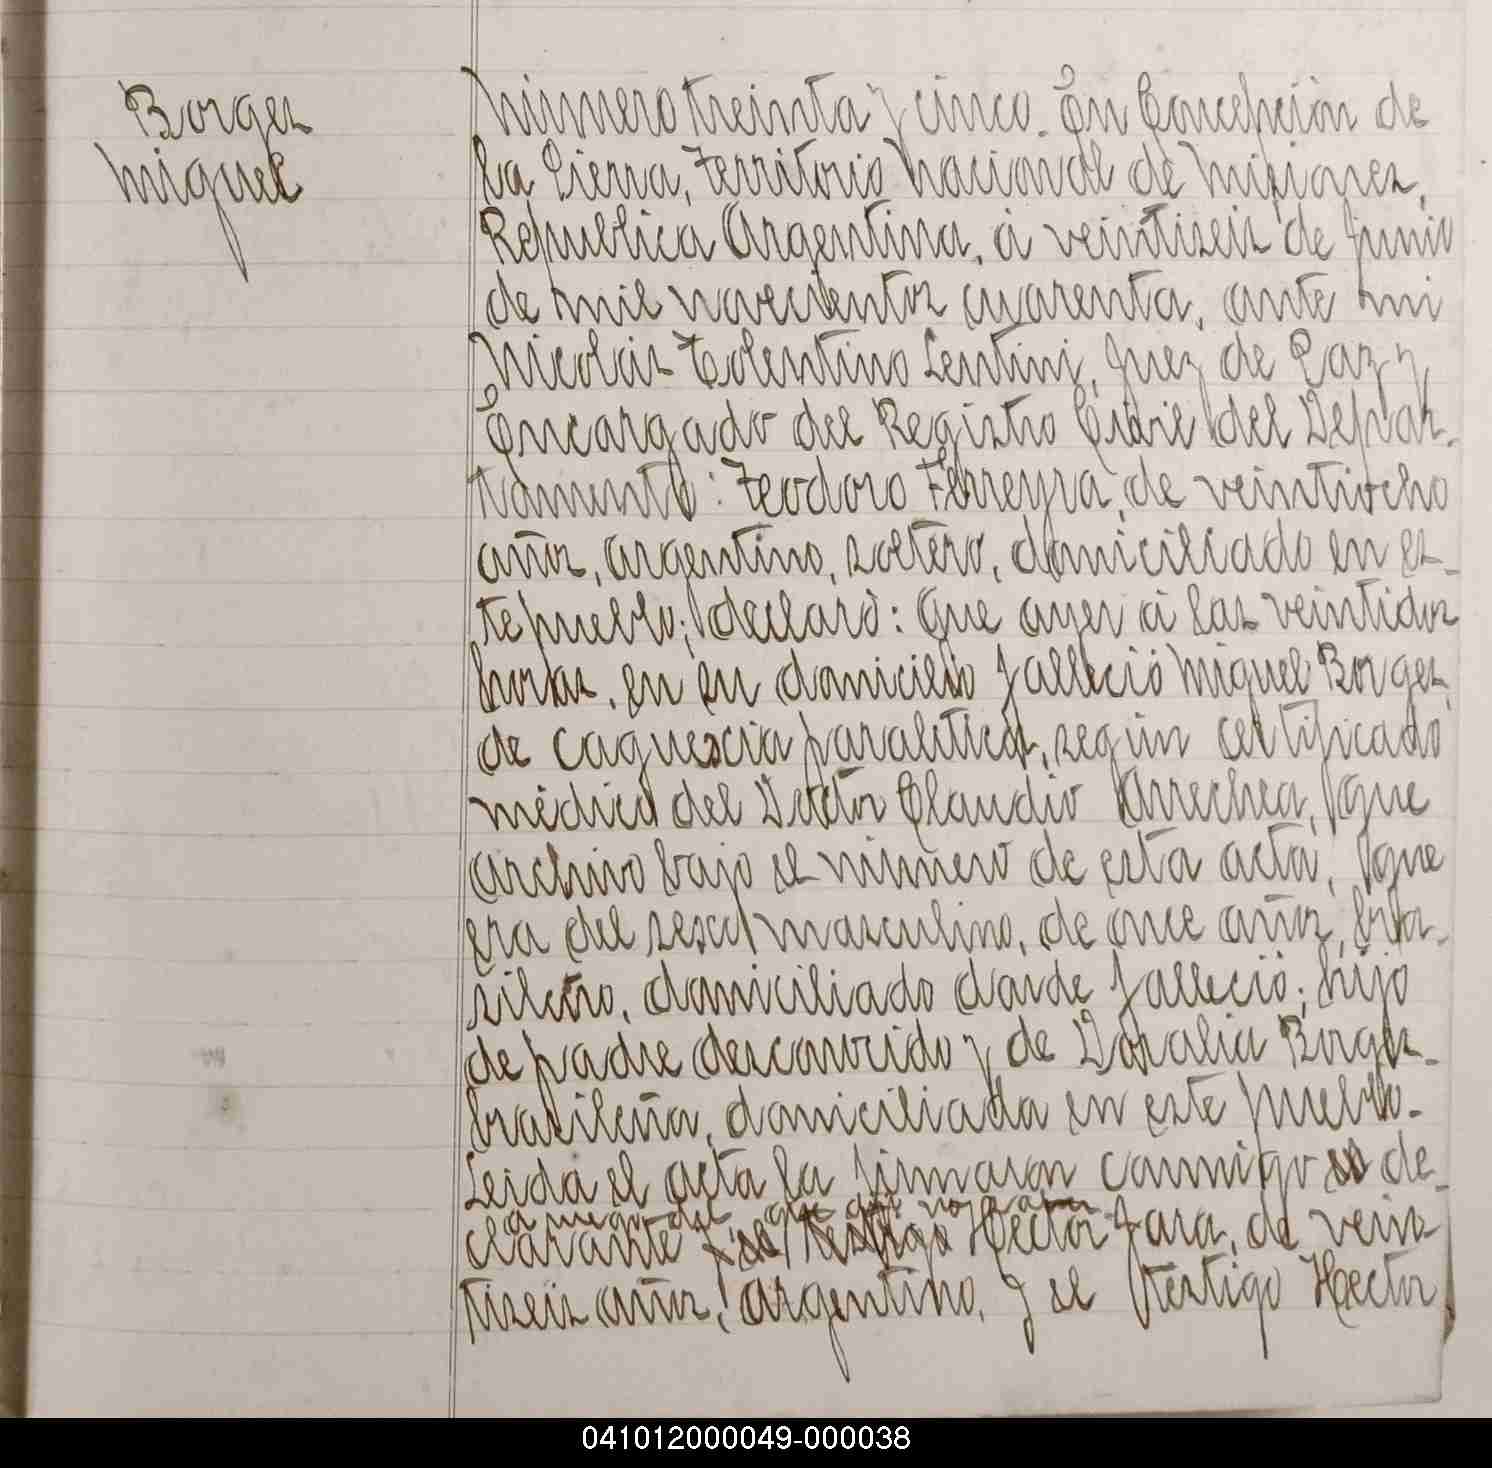 Borges
Miguel
Número treinta y cinco. En Concepción de
la Sierra, Territorio Nacional de Misiones,
República Argentina, á veintiseis de Junio
de mil novecientos cuarenta, ante mi
Nicolás Tolentino Lentini, Juez de Paz y
Encargado del Registro Civil del Depar-
tamento: Teodoro Ferreyra, de veintiocho
años, argentino, soltero, domiciliado en es-
te pueblo; declaró: Que ayer á las veintidos
horas, en su domicilio falleció Miguel Borges,
de caquexia paralitica, según certificado
médico del Doctor Claudio Arrechea, que
archivo bajo el número de esta acta, que
era del sexo masculino, de once años, bra-
sileño, domiciliado donde falleció; hijo
de padre desconocido y de Doralia Borges-
brasileña, domiciliada en este pueblo-
Leida el acta la firmaron conmigo el de-
a ruego del que dijo no
clarante y el testigo Hector Jara, de vein
tiseis años, argentino, y el testigo Hector
041012000049-000038